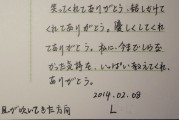 笑ってくれてありがとう。話しかけて
くれてありがとう。優しくしてくれ
てありがとう。私に、今までしらな
かった気持を、いっぱい教えてくれ、
ありがとう。
2014.02.08
風が吹いてきた方向 L